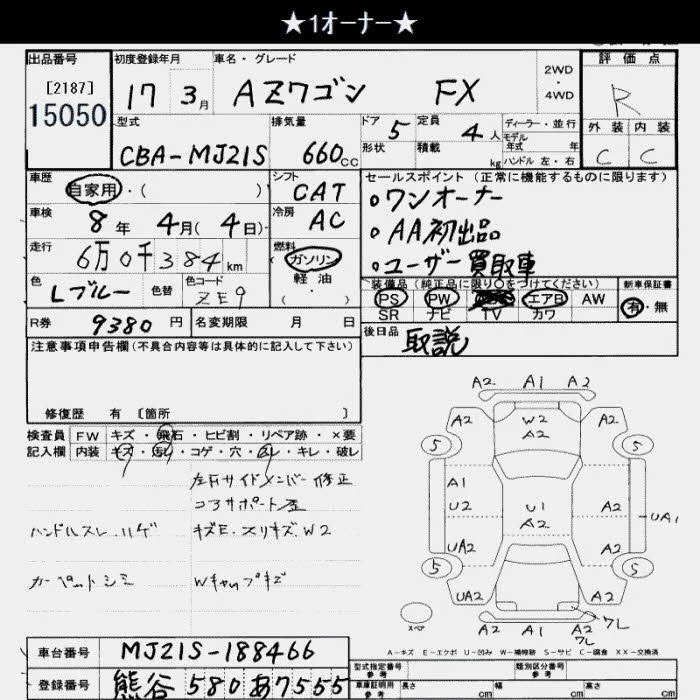 ★1オーナー★
出品番号 初度登録年月 車名・グレード 評価点
[2187] 17 3月 AZワゴン FX 2WD・4WD R
15050
型式 排気量 ドア 5 定員 4人 ディーラー・並行 外装 内装
モデル年式 年
CBA-MJ21S 660cc 形状 積載 kg ハンドル 左・右 C C
車歴 シフト セールスポイント (正常に機能するものに限ります)
自家用・( ) CAT ・ワンオーナー
車検 冷房 ・AA初出品
8年 4月(4日) AC ・ユーザー買取車
走行 燃料
6万0千384km ガソリン 軽油 ( )
装備品 (純正品に限り○をつけてください) 新車保証書
色 色替 色コード PS PW エアB AW 有・無
Lブルー ZE9 SR ナビ TV カワ
R券 9380円 名変期限 月 日 後日品 取説
注意事項申告欄(不具合内容等は具体的に記入して下さい)
修復歴 有 [箇所 ]
検査員 FW キズ・飛石・ヒビ割・リペア跡・×要
記入欄 内装 キズ・汚レ・コゲ・穴・スレ・キレ・破レ
左右サイドメンバー修正
コアサポート歪
ハンドルスレ ハゲ キズE・スリキズ W2
カーペットシミ Wキャップキズ
A2 A1 A2
A2 W2 A2 A2
5 5
A1
U2 U1 A2 A2 UA1
UA2 A2
5 5
UA2 A2
ワレ
A2 A1 A2 ワレ
スペア
A-キズ E-エクボ U-凹み W-補修跡 S-サビ C-腐食 XX-交換済
車台番号 MJ21S-188466
型式指定番号 参考 類別区分番号 参考
登録番号 熊谷 580 あ 7555
車庫証明用 参考 長さ cm 幅 cm 高さ cm